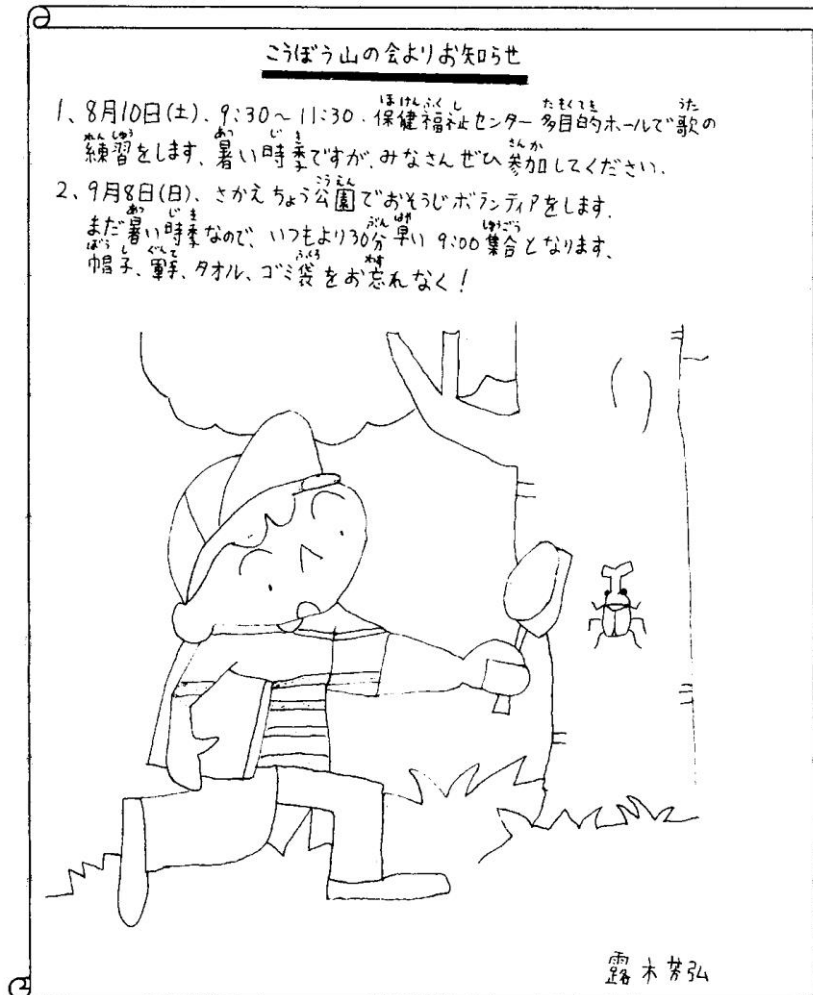 こうぼう山の会よりお知らせ
1、8月10日(土)、9:30～11:30、保健福祉センター多目的ホールで歌の
練習をします、暑い時季ですが、みなさんぜひ参加してください.
2、9月8日(日)、さかえちょう公園でおそうじボランティアをします.
まだ暑い時季なので、いつもより30分早い9:00集合となります、
帽子、軍手、タオル、ゴミ袋をお忘れなく！
露木芳弘